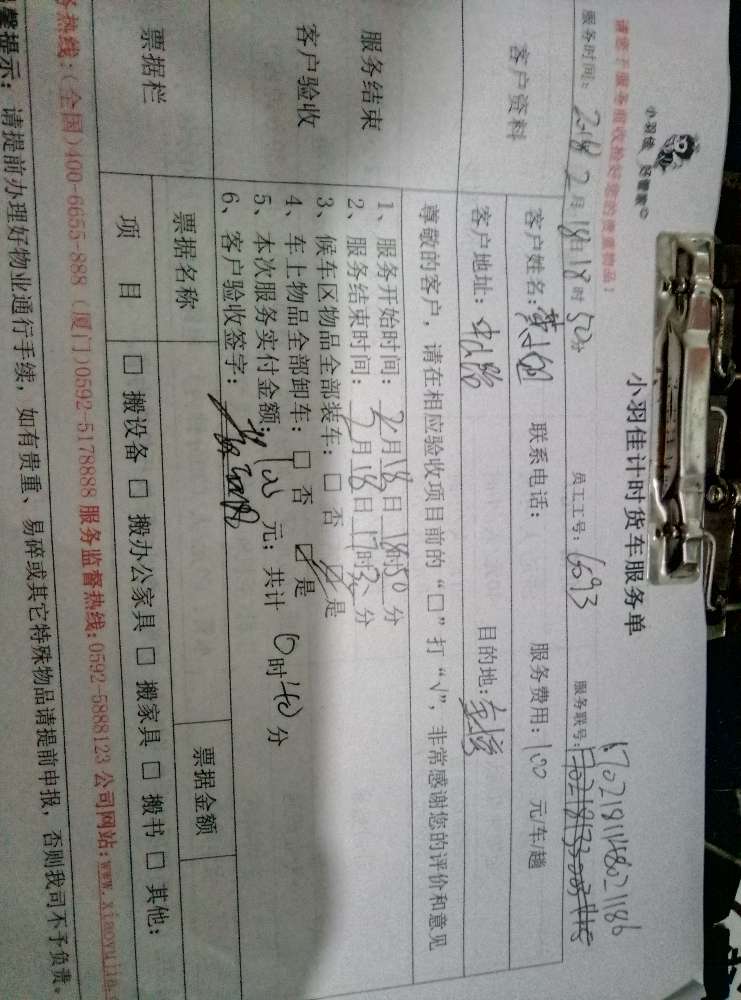 小羽佳 好管家
小羽佳计时货车服务单
请您于服务前收捡好您的贵重物品!
服务时间: 2018 2月18日18时50分 员工工号: 6093 服务联号:
客户资料
客户姓名: 联系电话: 服务费用: 100 元/车/趟
客户地址: 中山路 目的地:
尊敬的客户,请在相应验收项目前的“□”打“√”,非常感谢您的评价和意见
服务结束
客户验收
1、服务开始时间: 2月18日 时50分
2、服务结束时间: 2月18日 17时 分
3、候车区物品全部装车: □ 否 ☑ 是
4、车上物品全部卸车: □ 否 ☑ 是
5、本次服务实付金额: 100 元; 共计 0时40分
6、客户验收签字:
票据栏
票据名称 票据金额
项 目 □ 搬设备 □ 搬办公家具 □ 搬家具 □ 搬书 □ 其他:
务热线:(全国)400-6655-888 (厦门)0592-5178888 服务监督热线:0592-5888123 公司网站:www.xiaoyujia.
馨提示: 请提前办理好物业通行手续,如有贵重、易碎或其它特殊物品请提前申报,否则我司不予负责。